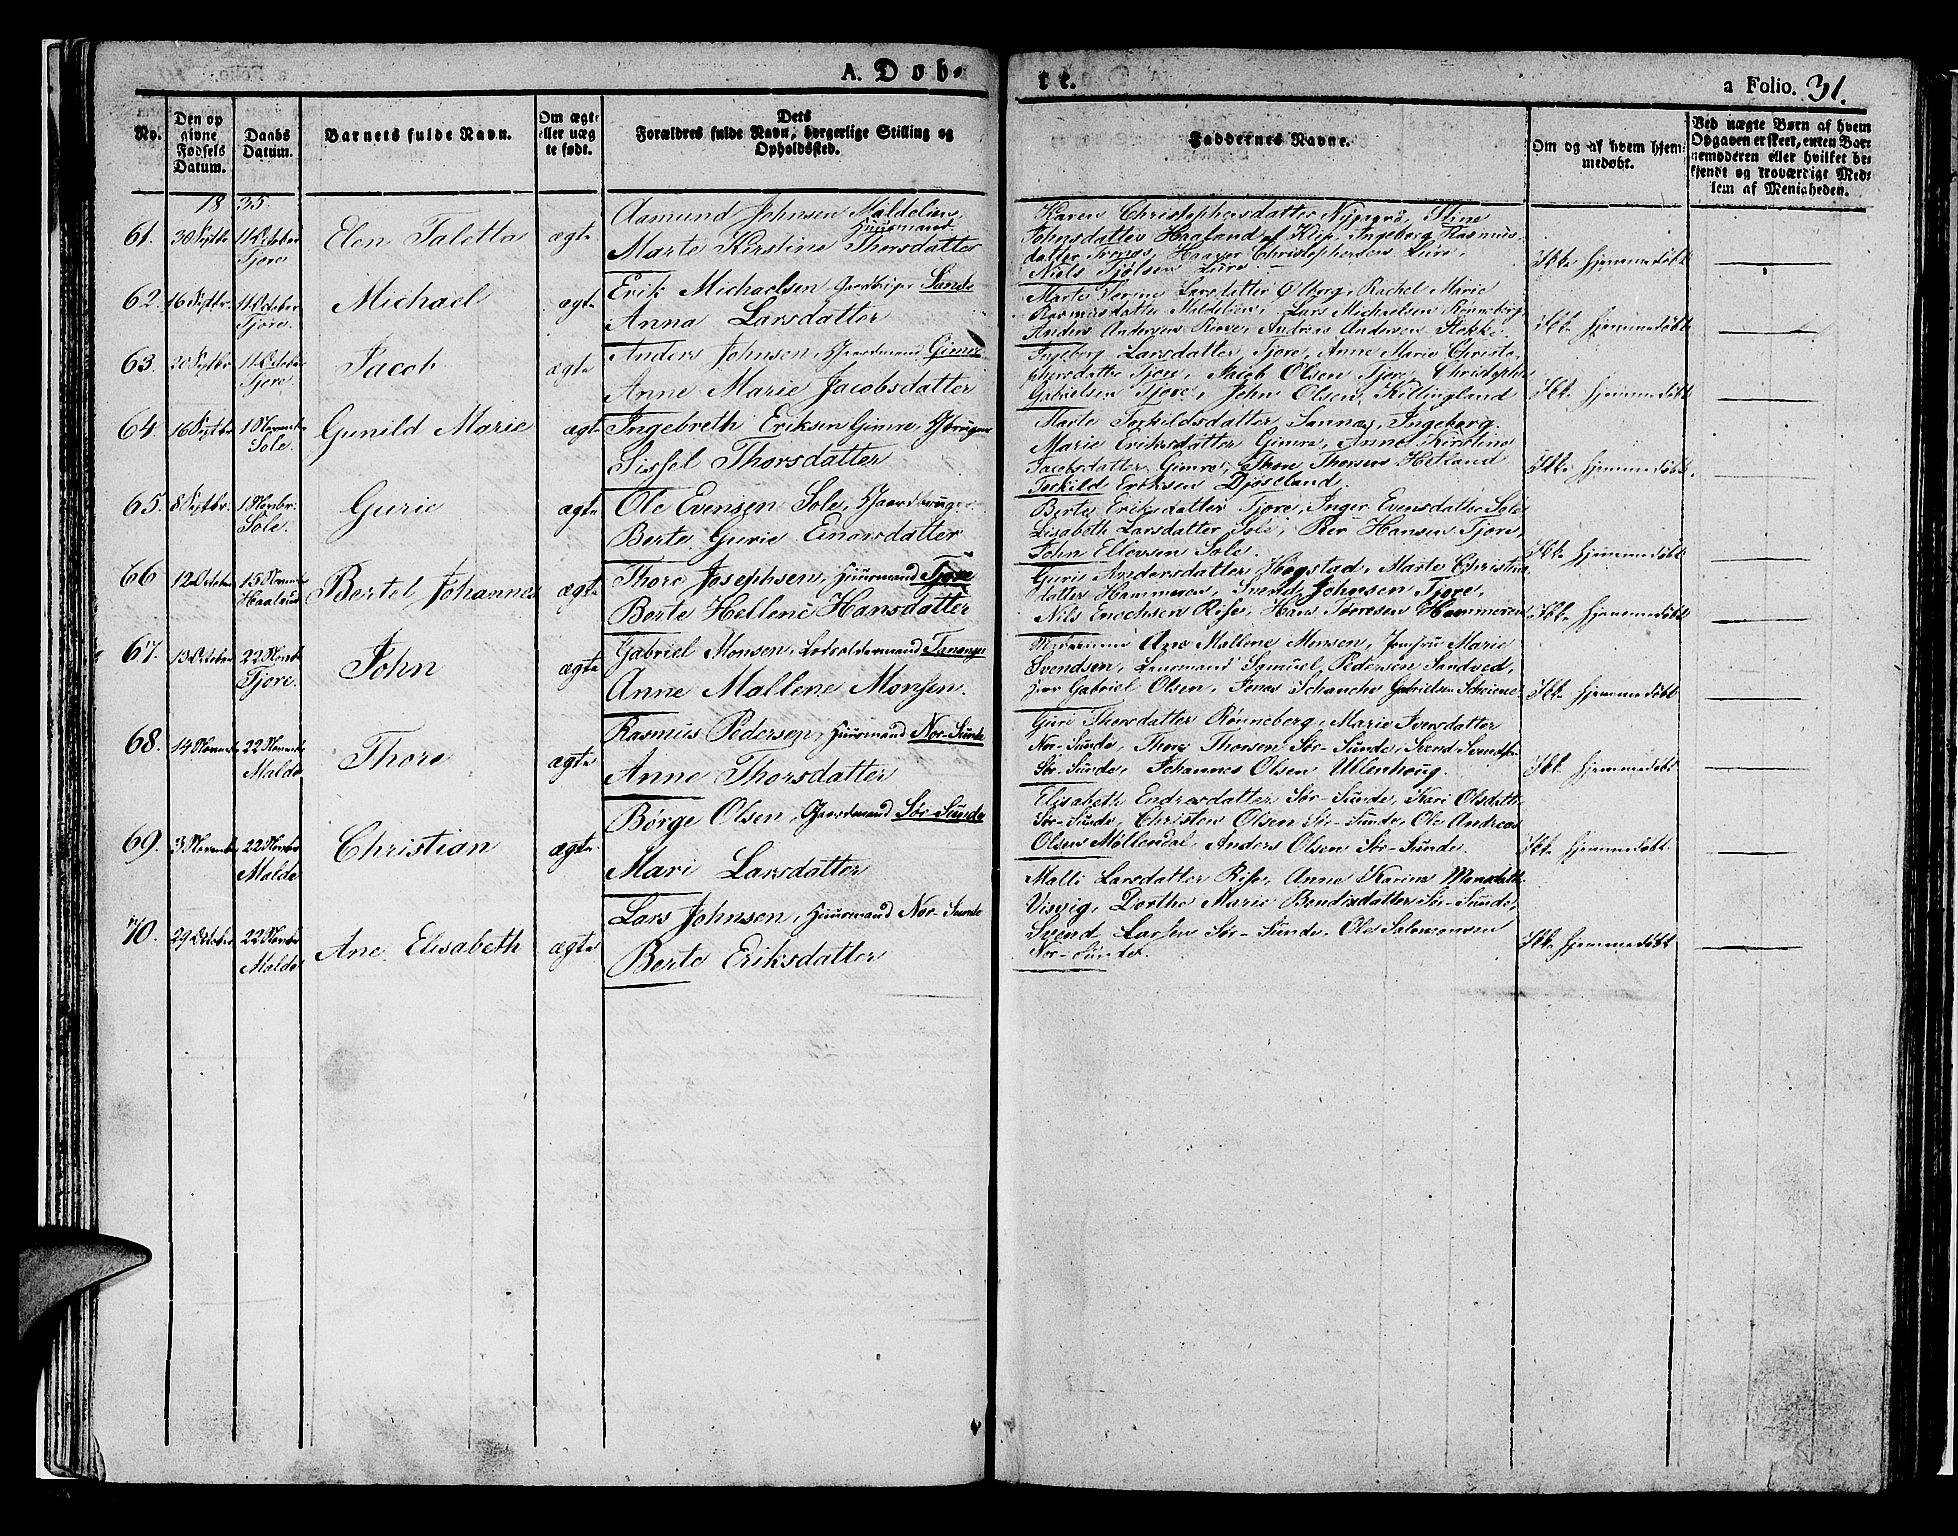 A. Døb-
te.
a Folio. 31.
No.
Den opgivne Fødsels Datum.
Daabs Datum.
Barnets fulde Navn.
Om ægte eller uægte født.
Dets Forældres fulde Navn, borgerlige Stilling og Opholdssted.
Faddernes Navne.
Om og af hvem hjemmedøbt.
Ved uægte Børn af hvem Opgaven er skeet, enten Barnemoderen eller hvilket bekjendt og troværdigt Medlem af Menigheden.
1835.
61. 30 Septbr 11 October Tjore Elen Taletta ægte
Aamund Johnsen Maldelien, Huusmand
Marte Kirstine Thorsdatter
Karen Christophersdatter Stine
Johnsdatter Haaland af Klep, Ingeborg Rasmus-
datter Haaver Christophersen Lure,
Niels Tjølsen Lure
Ikke hjemmedøbt
62. 16 Septbr. 11 October Tjore. Michael ægte
Erik Michaelsen, Sande
Anna Larsdatter
Marte Larsdatter Ølberg, Rachel Marie
Rasmusdatter Maldelien, Lars Michaelsen Rønneberg
Anders Andersen Andreas Andersen
Ikke hjemmedøbt
63. 20 Septbr 11 October Tjore. Jacob ægte
Anders Johnsen, Gaardmand Gimre
Anne Marie Jacobsdatter
Ingeborg Larsdatter Tjore, Anne Marie Christo-
phersdatter Tjore, Jacob Olsen Tjore, Christopher
Gabrielsen Tjore, John Olsen, Killingland
Ikke hjemmedøbt
64. 16 Septbr. 1 November Sole. Gunild Marie ægte
Ingebreth Eriksen Gimre, Gbruger
Sissel Thorsdatter
Marte Torkildsdatter Sannæs, Ingeborg
Marie Eriksdatter Gimre, Anne Kirstine
Jacobsdatter Gimre, Thore Thorsen Hetland
Torkild Eriksen Djøseland.
Ikke hjemmedøbt
65. 8 Septbr. 1 Novbr. Sole. Gurie ægte
Ole Evensen Sole, Gaardbruger
Berte Gurie Einarsdatter
Berte Eriksdatter Tjore, Inger Evensdatter Sole
Lisabeth Larsdatter Sole, Per Hansen Tjore,
John Ellevsen Sole.
Ikke hjemmedøbt
66 12 October 15 November Haaland Bertel Johannes ægte
Thore Josephsen, Huusmand Tjore
Berte Hellene Hansdatter
Guri Andersdatter Hogstad, Marte Christens
datter Hammeren, Svend Johnsen Tjore,
Nils Enochsen Risse, Hans Torresen Hammeren
Ikke hjemmedøbt
67. 13 October 22 Novbr Tjore. John ægte
Gabriel Monsen, Lodsoldermand Tananger
Anne Mallene Monsen.
Ane Mallene Monsen, Jomfru Marie
Svendsen, Lensmand Samuel Pedersen Sandved,
Gabriel Olsen, Jonas Schanche Gabrielsen
Ikke hjemmedøbt
68. 14 November 22 November Malde Thore ægte
Rasmus Pedersen, Huusmand Nor-Sunde
Anne Thorsdatter
Guri Thorsdatter Rønneberg, Marie Iversdatter
Nor-Sunde, Thore Thorsen Sør-Sunde, Svend Svendsen
Sør-Sunde, Johannes Olsen Ullenhoug.
Ikke hjemmedøbt
69. 3 November 22 Novbr Malde Christian ægte
Børge Olsen, Gaardmand Sør-Sunde
Mari Larsdatter
Elisabeth Endresdatter Sør-Sunde, Kari Olsdatter
Sør-Sunde, Christen Olsen Sør-Sunde, Ole Andreas
Olsen Møllendal, Anders Olsen Sør-Sunde.
Ikke hjemmedøbt
70. 29 October 22 Novbr Malde Ane Elisabeth ægte
Lars Johnsen, Huusmand Nor-Sunde
Berte Eriksdatter
Malli Larsdatter Risse, Anne Karine Monsdatter
Visvig, Dorthe Marie Bendixdatter Sør-Sunde,
Svend Larsen Sør-Sunde. Ole Salomonsen
Nor-Sunde.
Ikke hjemmedøbt